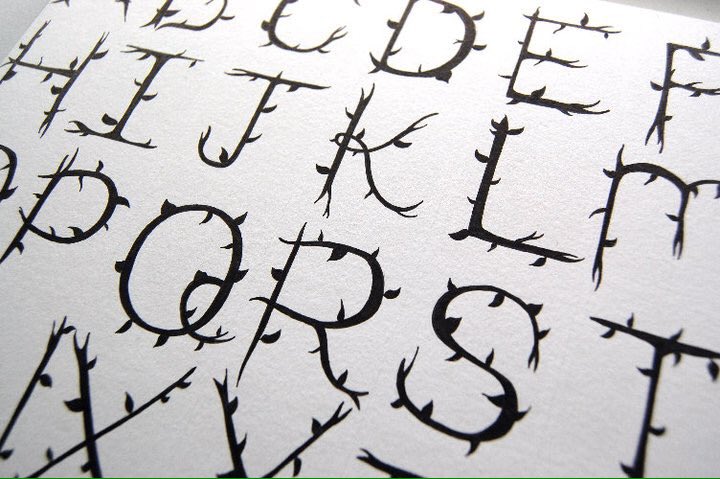 B C D E F
H I J K L m
P Q R S T
X Y